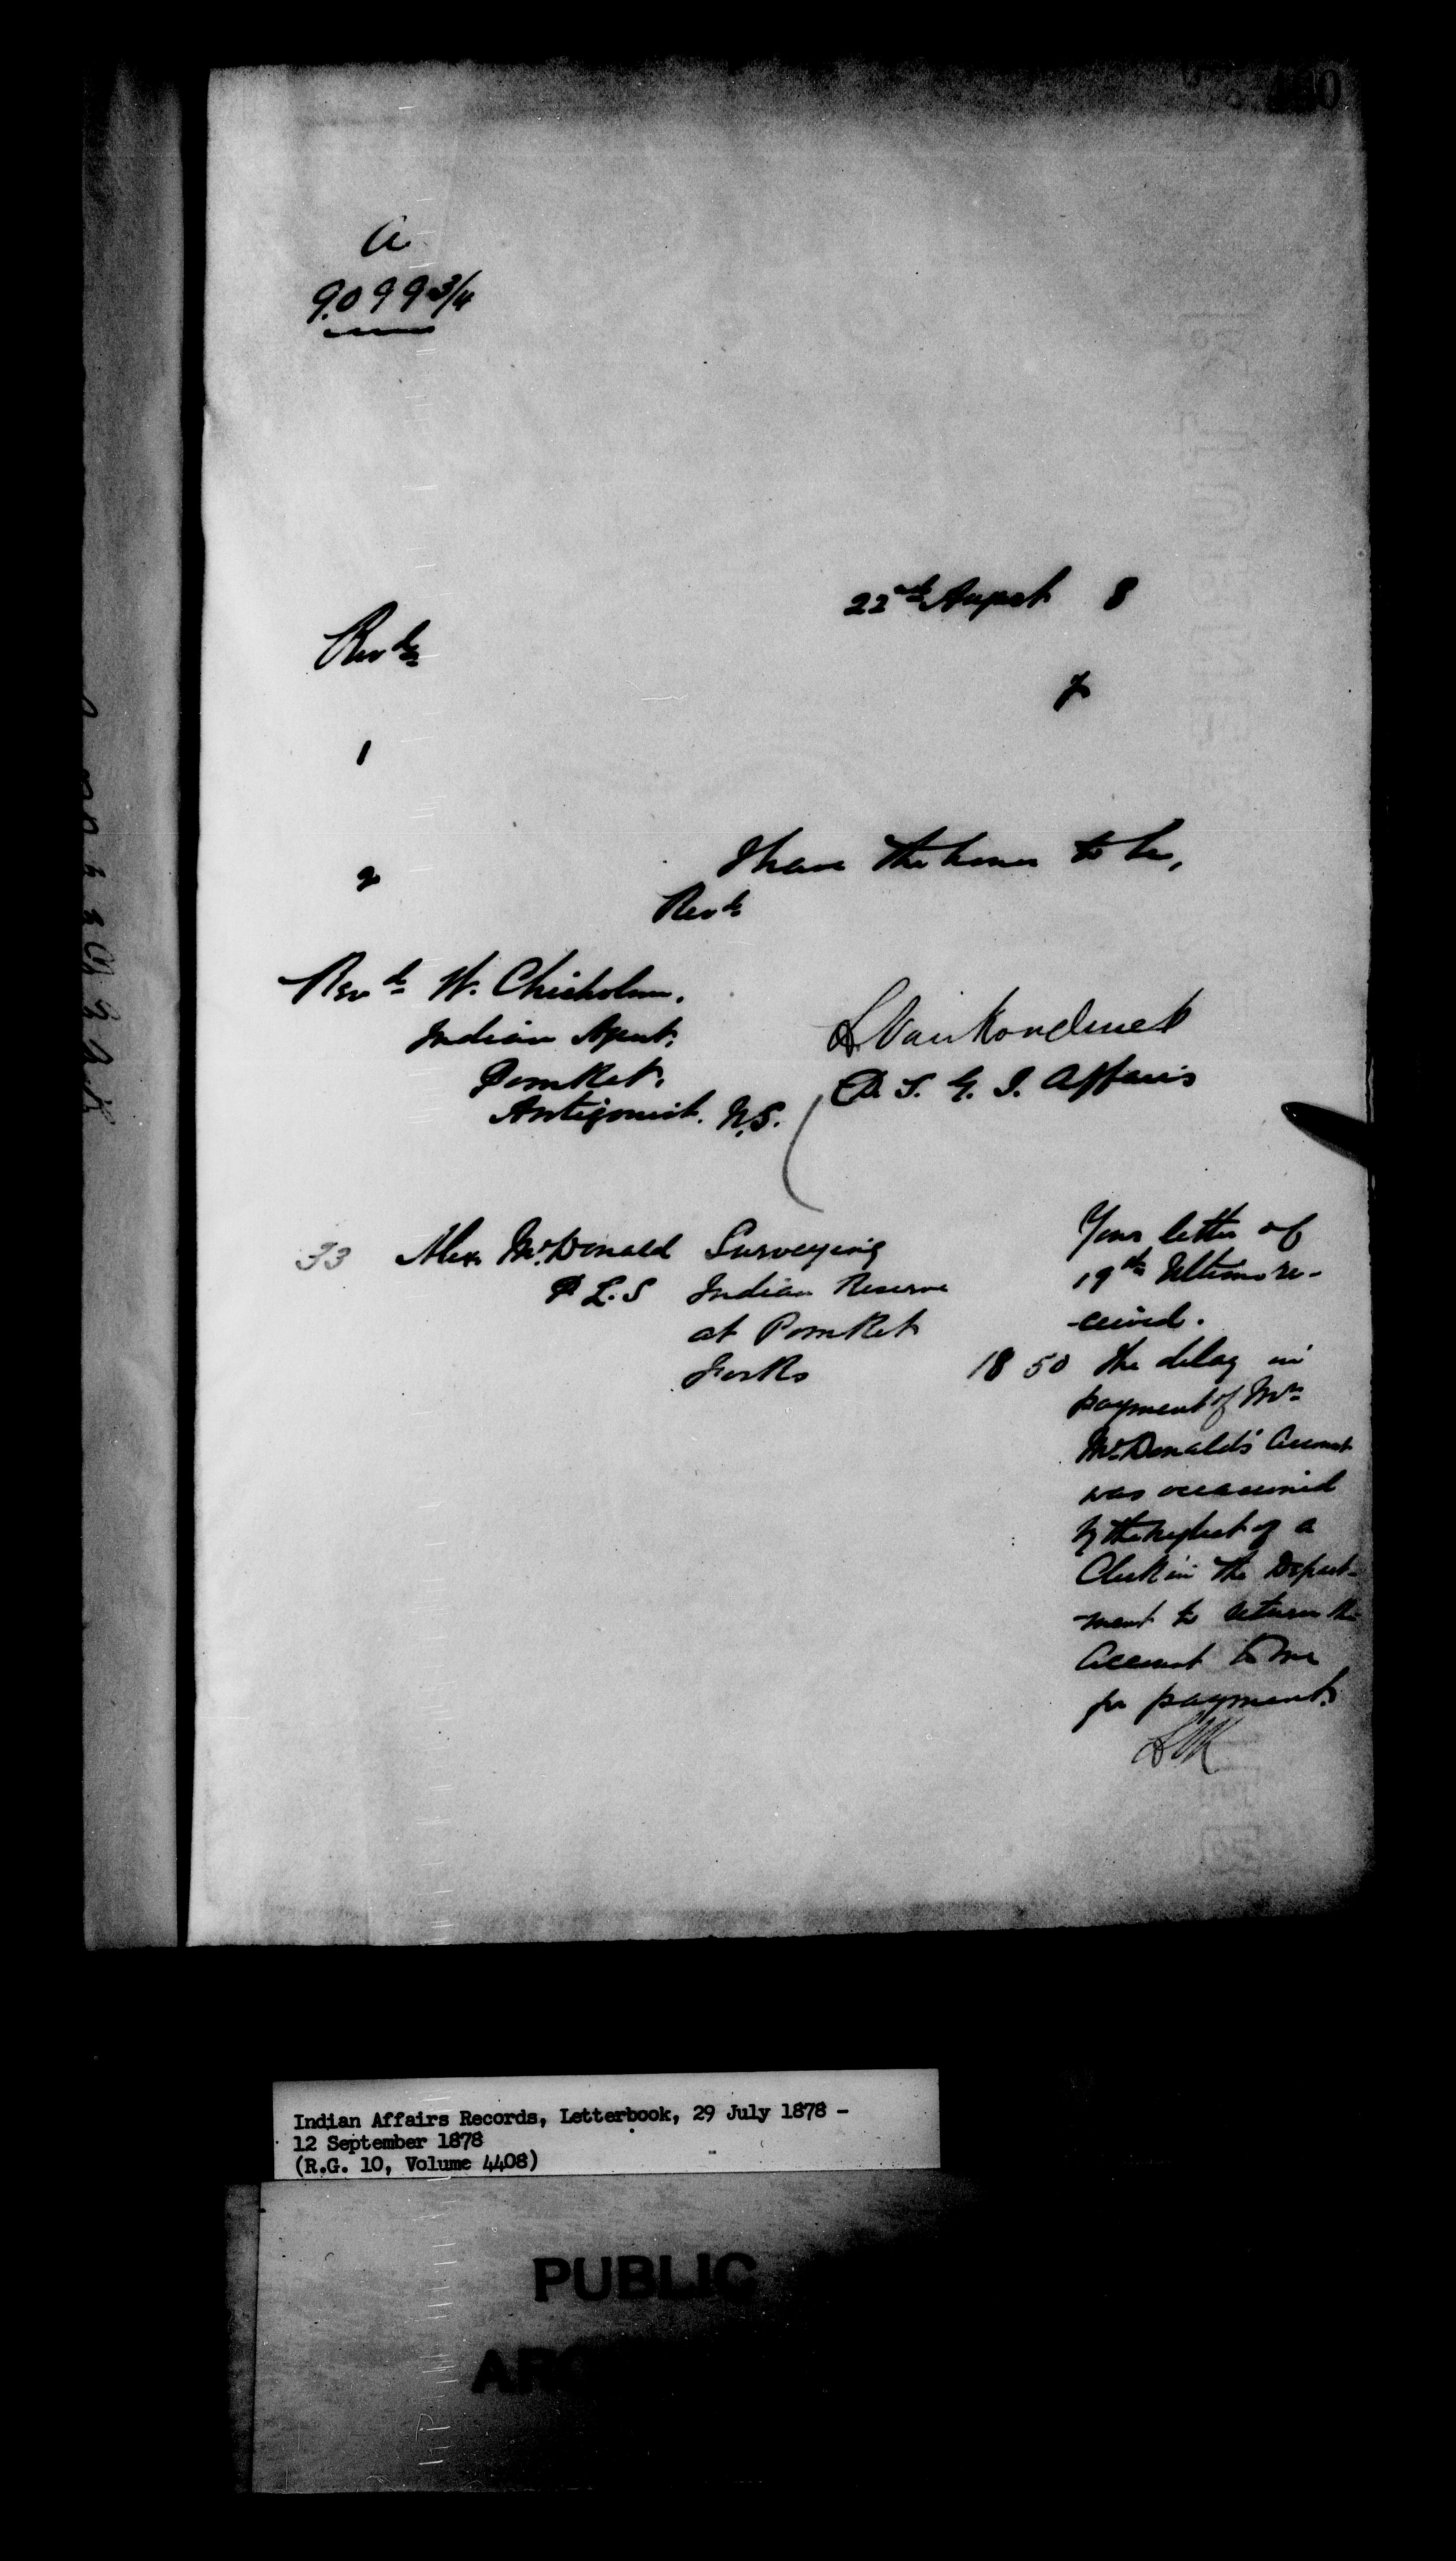 A
9099 3/4
22nd August 8
Revd
1
2
I have the honor to be,
Revd
Revd W. Chisholm.
Indian Agent.
Pomket.
Antigonish. N.S.
L. VanKoughnet
D. S. G. I. Affairs
33 Alex McDonald Surveying
P L. S Indian Reserve
at Pomket
Forks 18 50
Your letter of
19th Ultimo re-
ceived.
The delay in
payment of Mr
McDonald's Account
was occasioned
by the neglect of a
Clerk in the Depart-
ment to return the
Account to me
for payment.
LVK
Indian Affairs Records, Letterbook, 29 July 1878 -
12 September 1878
(R.G. 10, Volume 4408)
PUBLIC